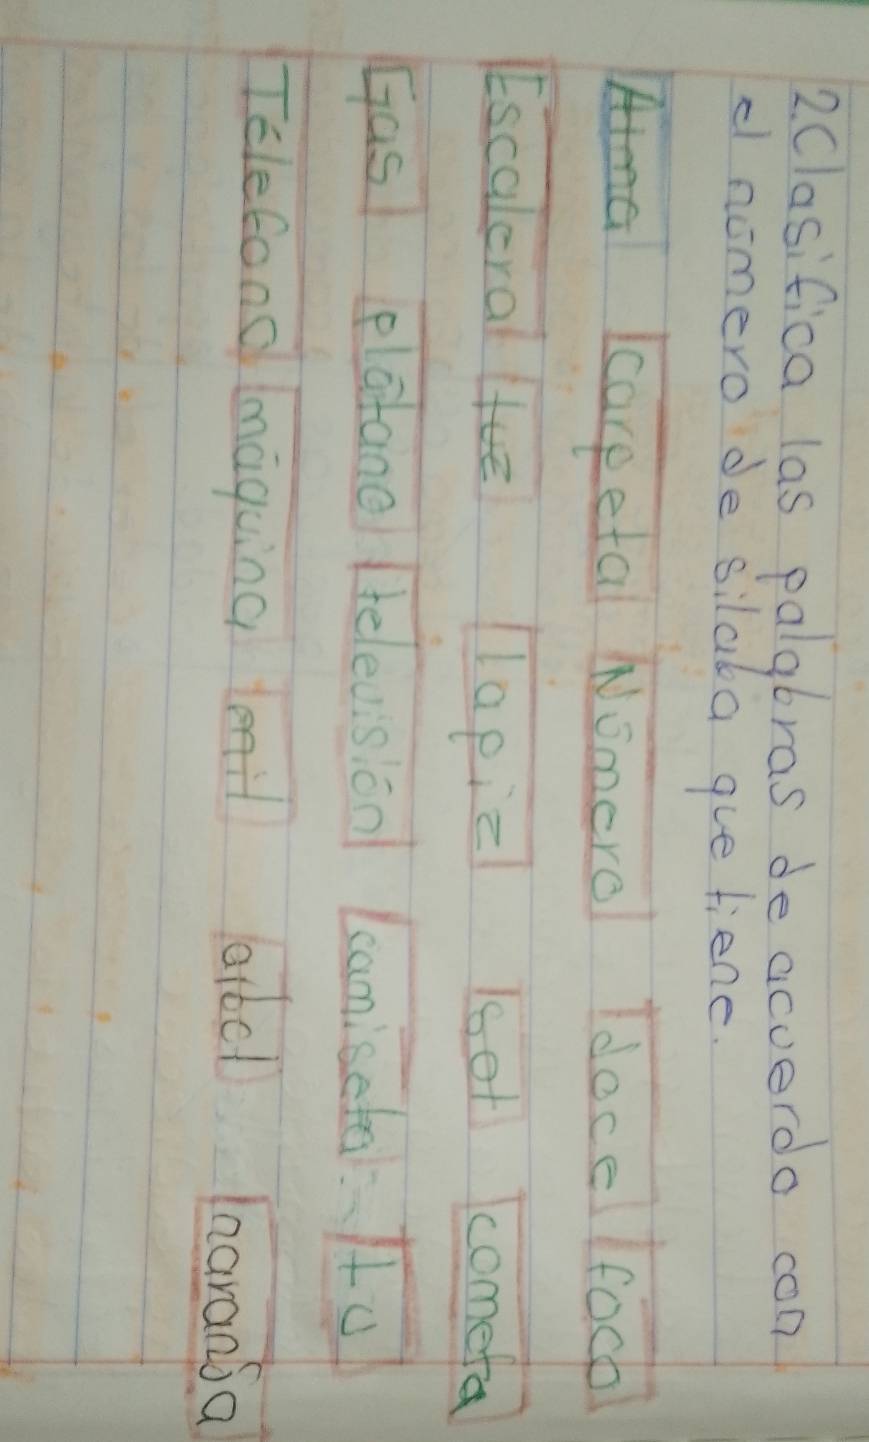 2. Clasifica las palabras de acuerdo con
el número de silaba que tiene.
Alma carpeta Número doce foco
Escalera luz lapiz sol cometa
Gas plátano televisión camiseta tú
Télefono máquina mil arbol naranja